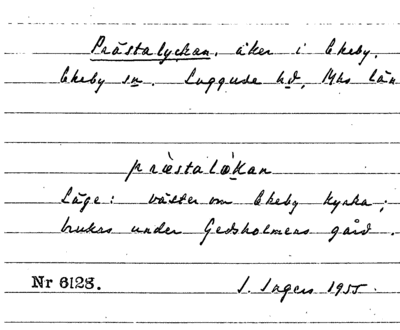 Prästalyckan, åker i Ekeby,
Ekeby sn. Luggude hd, Mhs län
prästalökan
Läge: väster om Ekeby kyrka;
brukas under Gedsholmens gård.
Nr 6128. I. Ingers 1955.